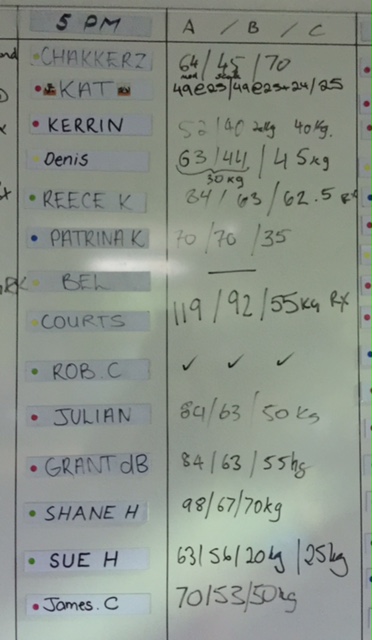 5 PM A / B / C
CHAKKERZ 64/45/70
KAT 49@25/49@25+24/25
KERRIN 40kg.
Denis 63/44/45kg
30kg
REECE K 84/63/62.5 RX
PATRINA K 70/70/35
BEL —
COURTS 119/92/55kg RX
ROB. C ✓ ✓ ✓
JULIAN 84/63/50kg
GRANT dB 84/63/55kg
SHANE H 98/67/70kg
SUE H 63/56/20kg/25kg
James. C 70/53/50kg